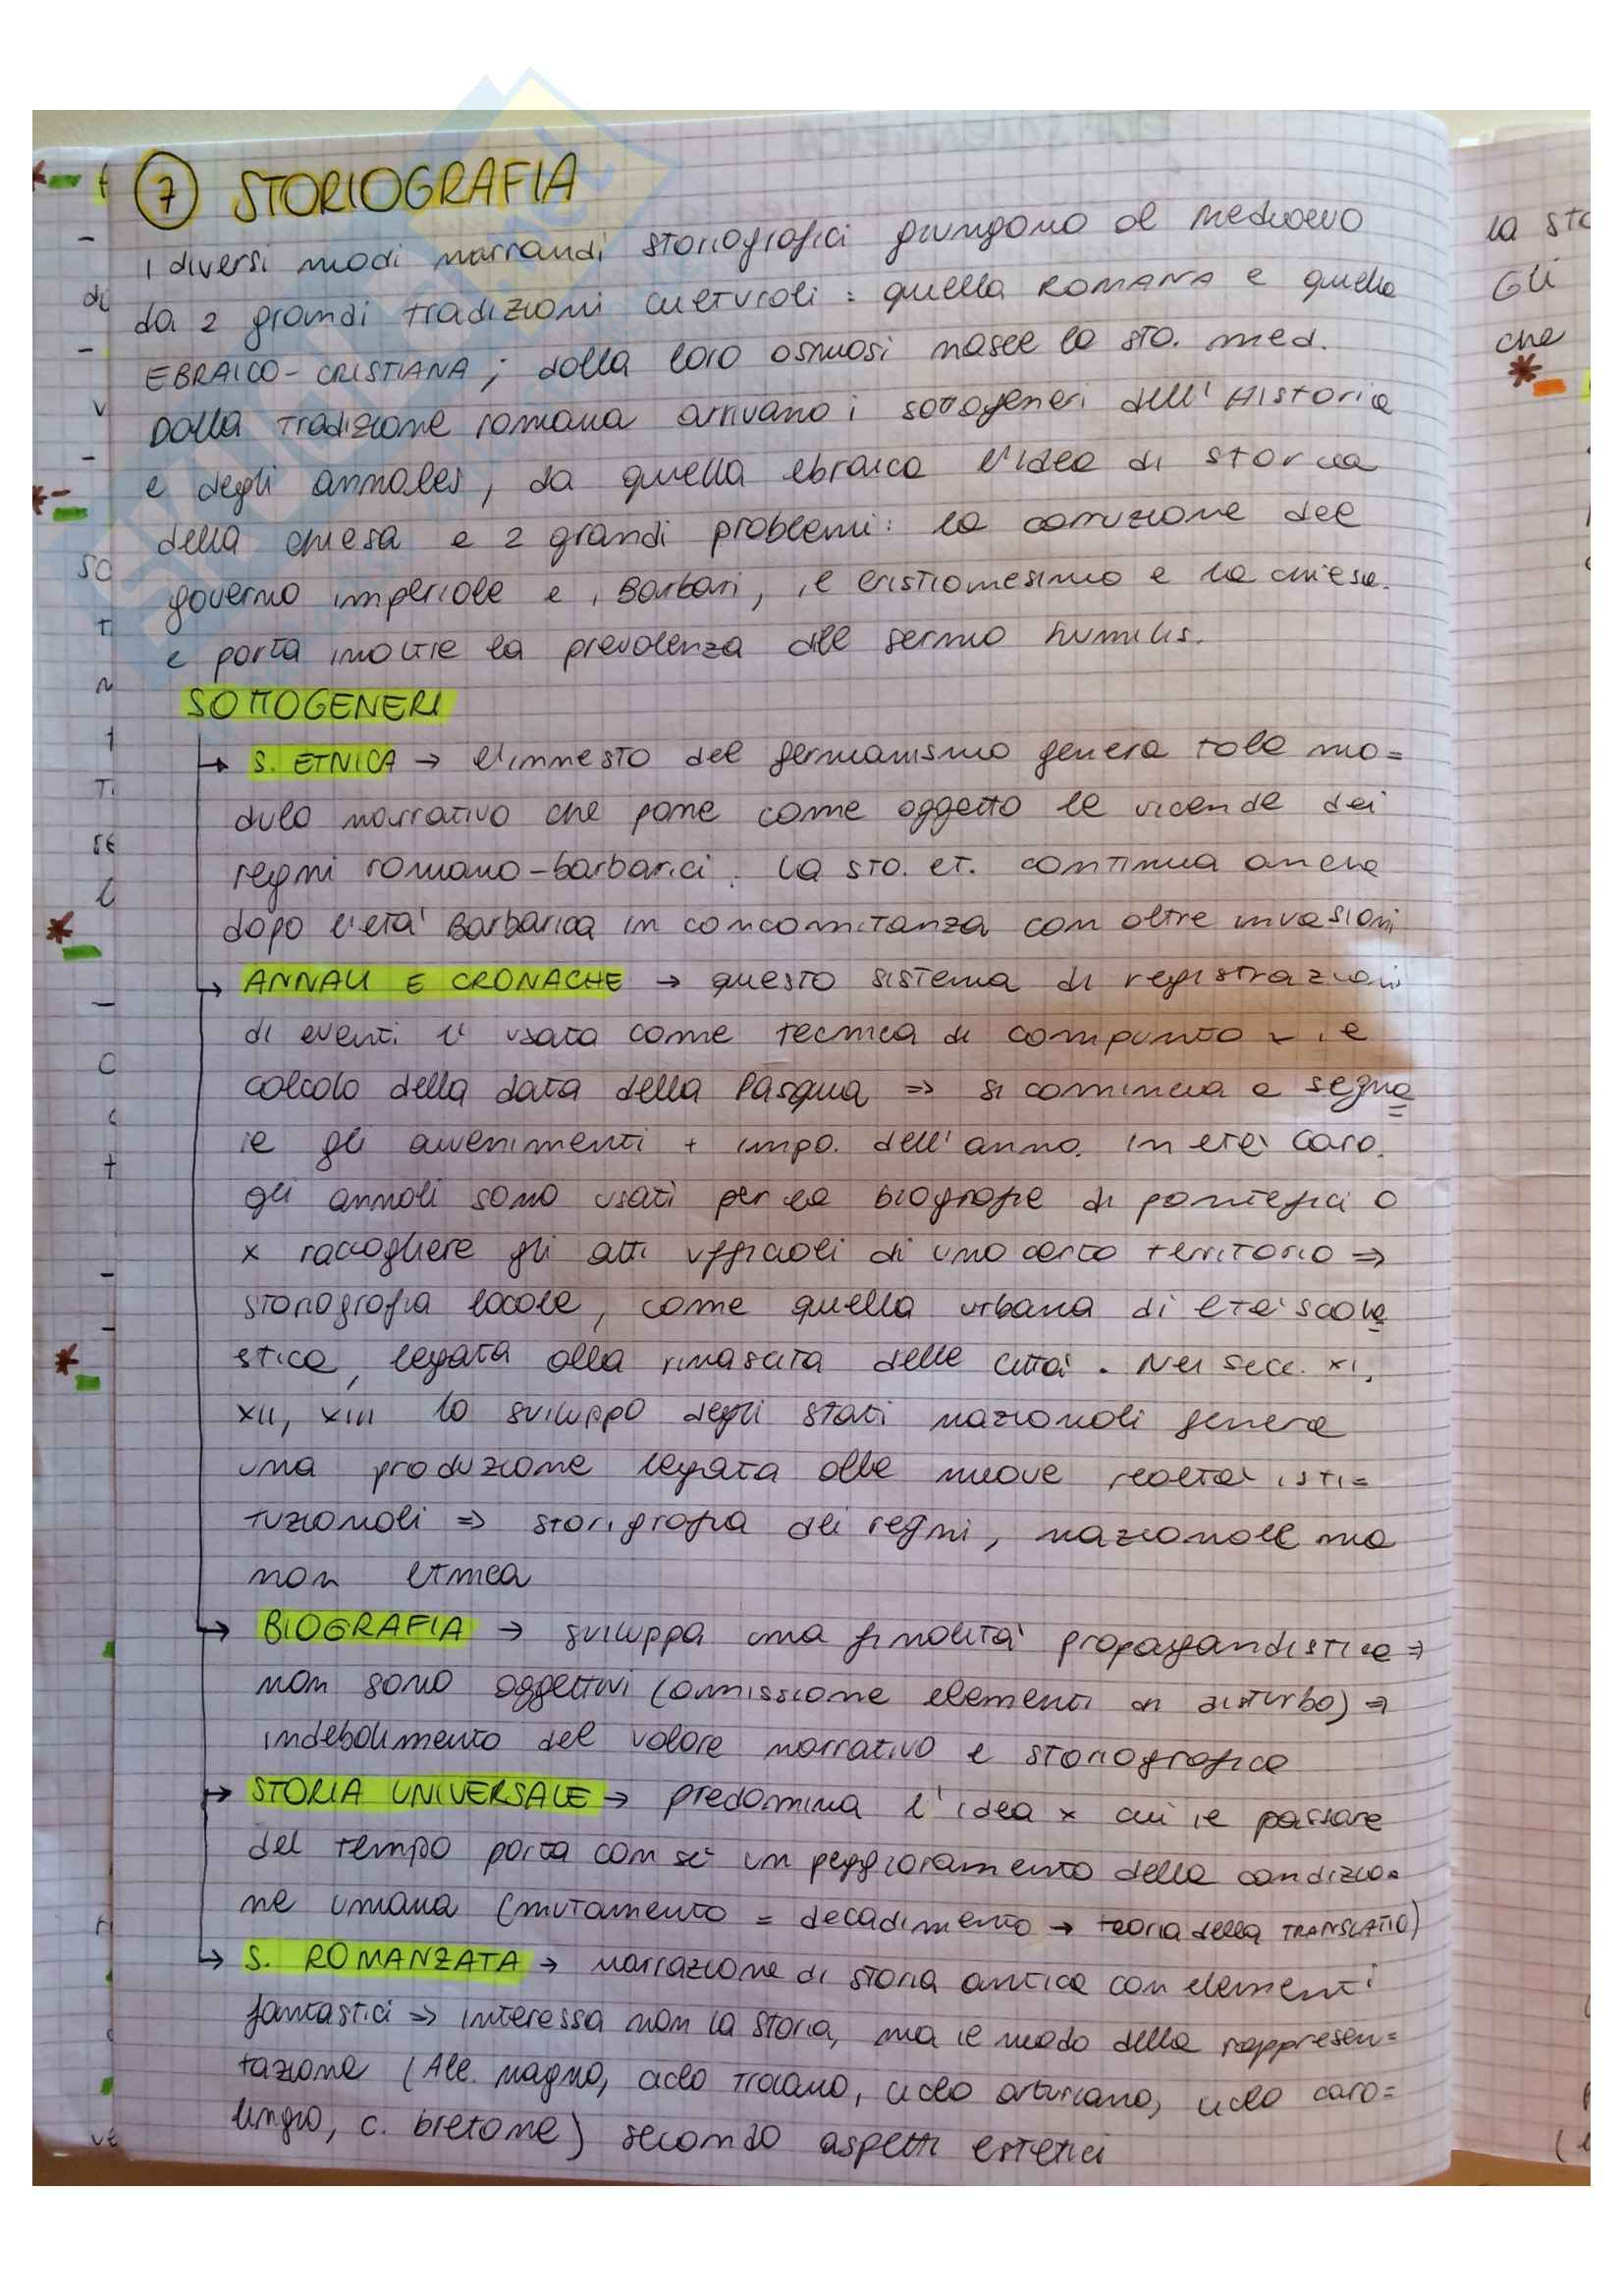 7 STORIOGRAFIA
I diversi modi narrandi storiografici giungono al Medioevo
da 2 grandi tradizioni culturali: quella ROMANA e quella
EBRAICO-CRISTIANA; dalla loro osmosi nasce la sto. med.
Dalla tradizione romana arrivano i sottogeneri dell'Historia
e degli annales, da quella ebraica l'idea di storia
della chiesa e 2 grandi problemi: la corruzione del
governo imperiale e i Barbari, il cristianesimo e la chiesa.
e porta inoltre la prevalenza del sermo humilis.
SOTTOGENERI
→ S. ETNICA → l'innesto del germanismo genera tale mo=
dulo narrativo che pone come oggetto le vicende dei
regni romano-barbarici. La sto. et. continua anche
dopo l'età Barbarica in concomitanza con altre invasioni
→ ANNALI E CRONACHE → questo sistema di registrazioni
di eventi è usata come tecnica di computo il
calcolo della data della Pasqua ⇒ si comincia a segna=
re gli avvenimenti + impo. dell'anno. In età caro.
gli annali sono usati per la biografie di pontefici o
x raccogliere gli atti ufficiali di uno certo territorio ⇒
storiografia locale, come quella urbana di età scola=
stica, legata alla rinascita delle città. Nei secc. XI,
XII, XIII lo sviluppo degli stati nazionali genera
una produzione legata alle nuove realtà isti=
tuzionali ⇒ storigrafia dei regni, nazionale ma
non etnica
→ BIOGRAFIA → sviluppa una finalità propagandistica ⇒
non sono oggettivi (omissione elementi di disturbo) ⇒
indebolimento del valore narrativo e storiografico
→ STORIA UNIVERSALE → predomina l'idea x cui il passare
del tempo porta con sé un peggioramento della condizio=
ne umana (mutamento = decadimento → teoria della TRANSLATIO)
→ S. ROMANZATA → narrazione di storia antica con elementi
fantastici ⇒ interessa non la storia, ma il modo della rappresen=
tazione (Ale. magno, ciclo Troiano, ciclo arturiano, ciclo caro=
lingio, c. bretone) secondo aspetti estetici
la sto
Gli
che